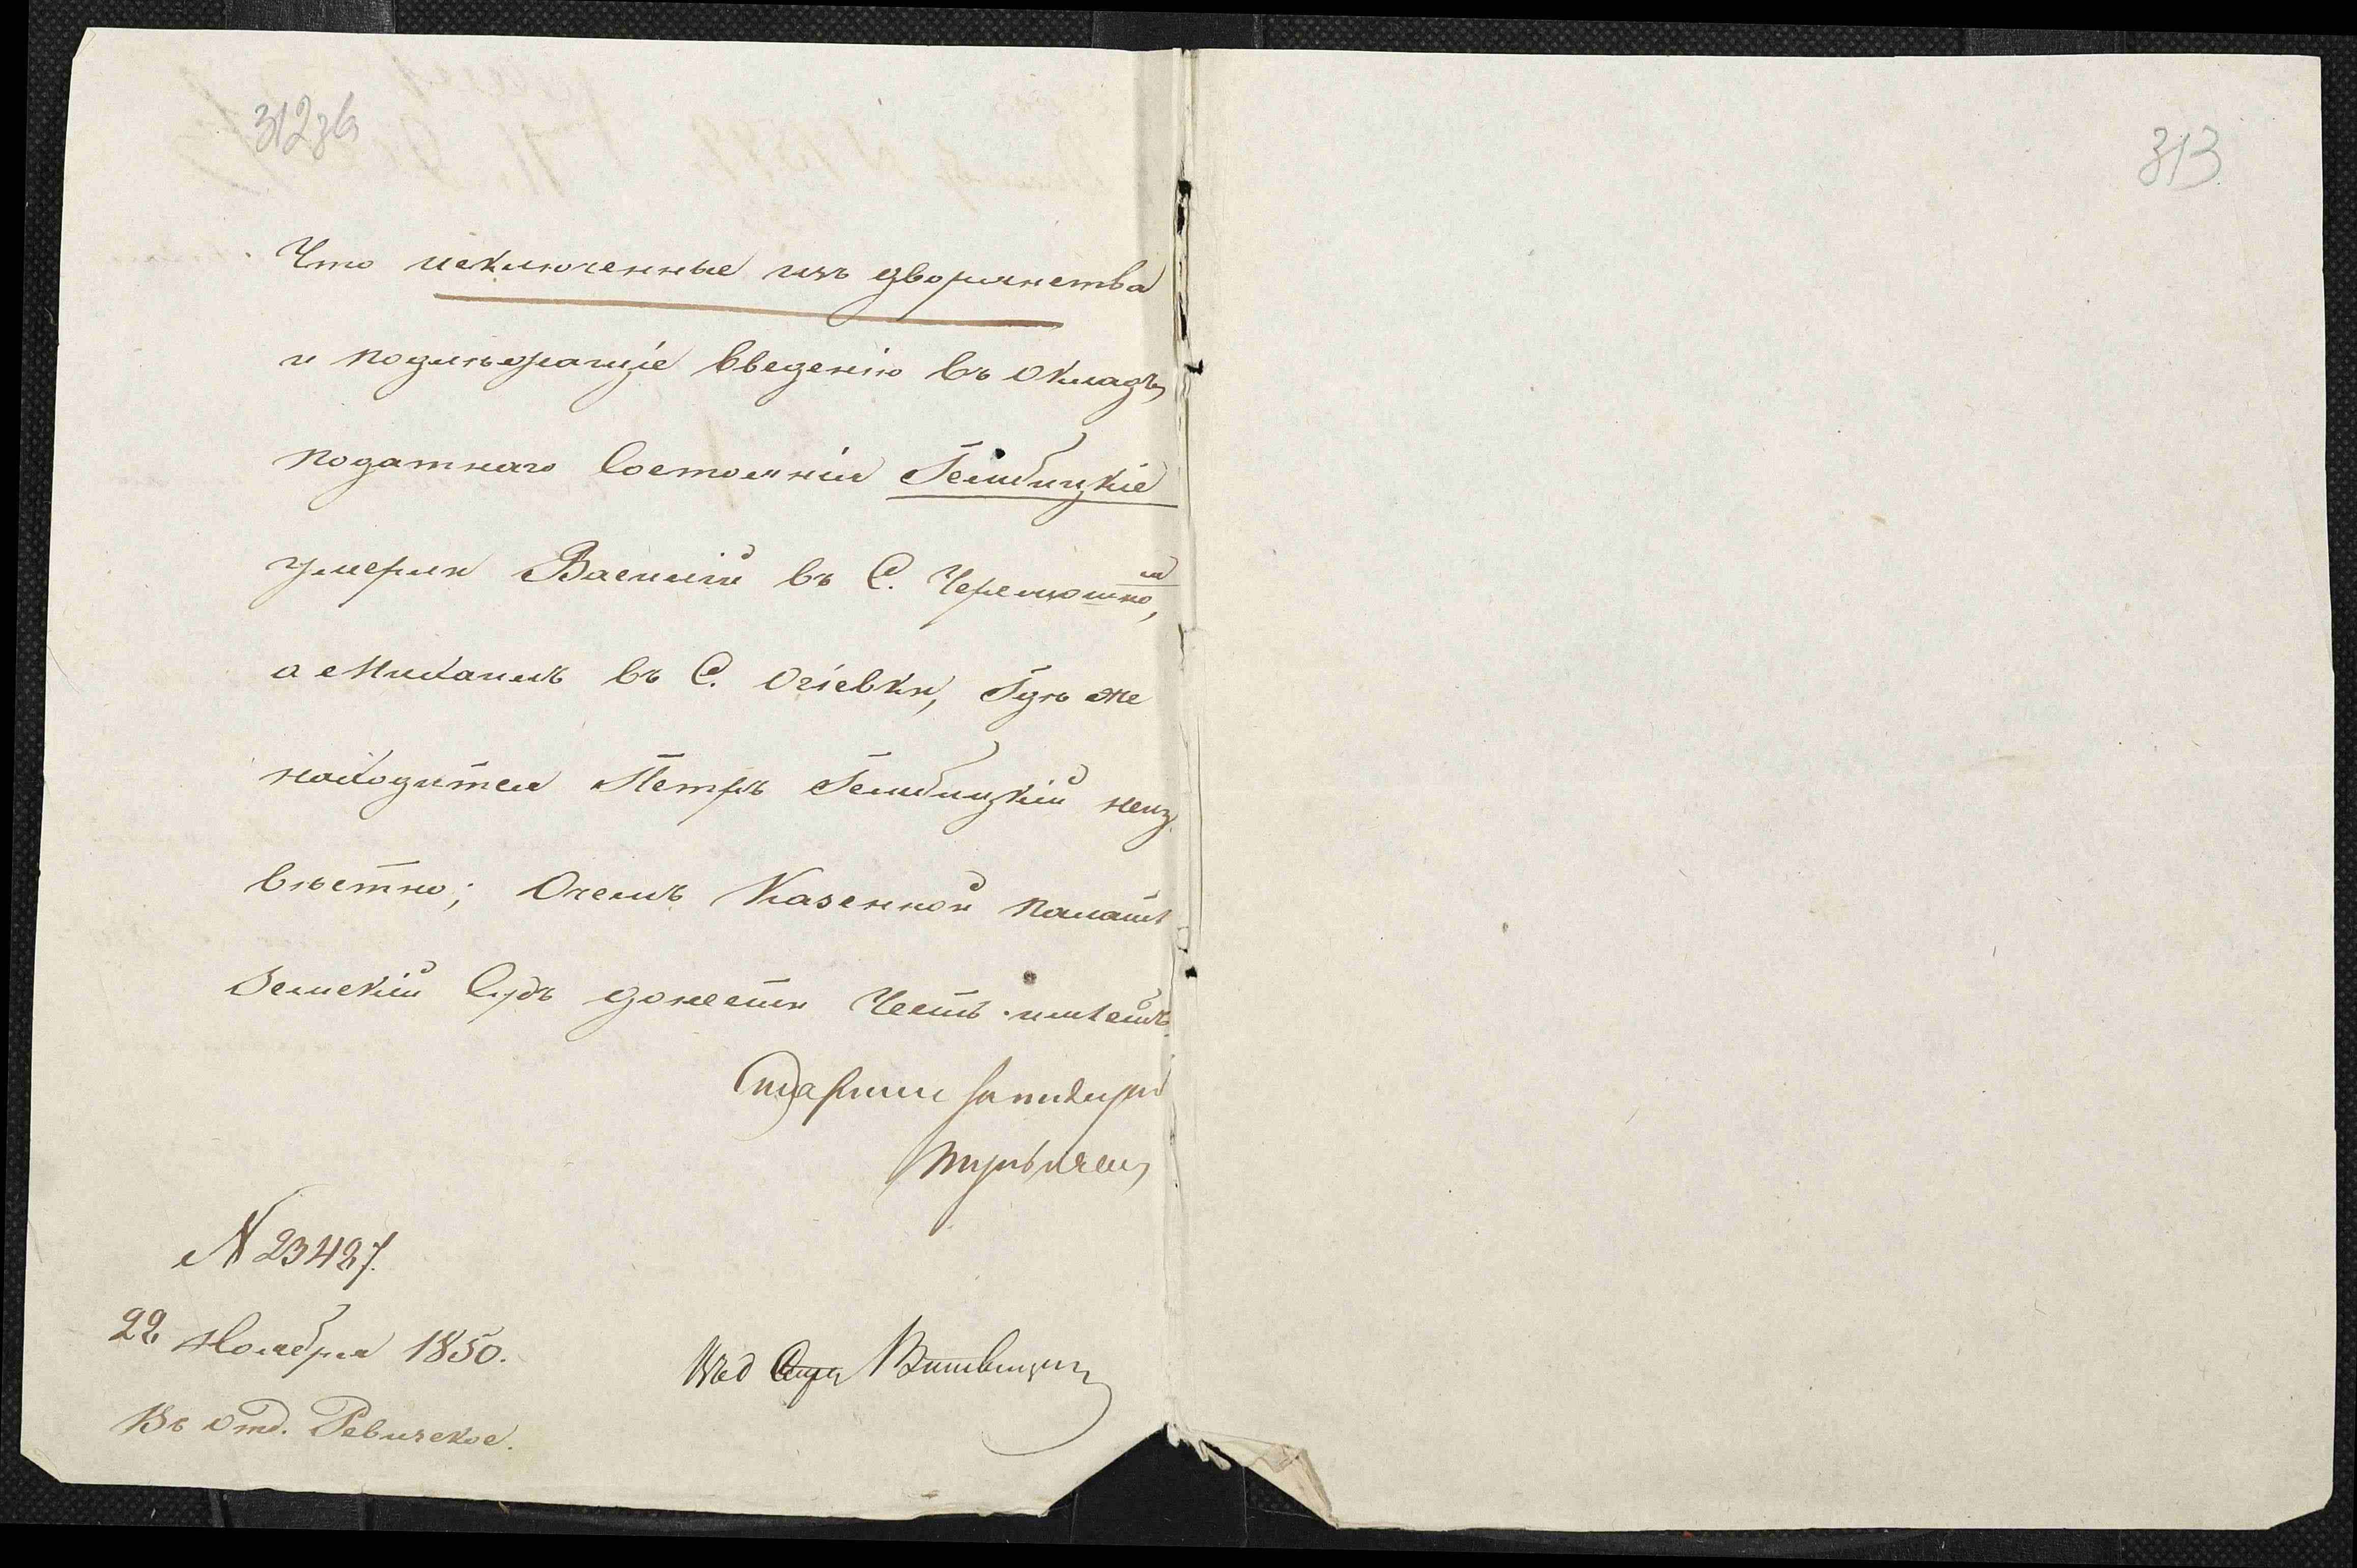 312 зв
313
Что исключенные изъ дворянства
и подлѣжащіе введенію въ окладъ
податнаго состоянія Гембицкіе
умерли Василій въ С. Черемошно,
а Михаилъ въ С. Огіевки, Гдѣ же
находится Петръ Гембицкій неиз
вѣстно; Очемъ Казенной палатѣ
Земскій Судъ донести Честь имѣетъ.
Старшій
N 23487.
22 Ноября 1850.
Въ отд. Ревизское.